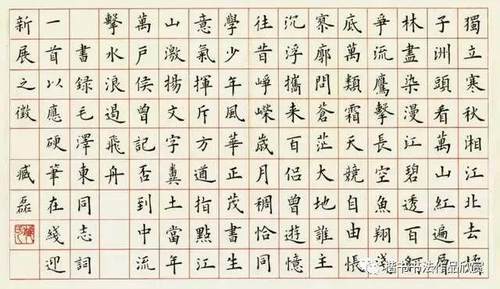 獨立寒秋湘江北去橘
子洲頭看萬山紅遍層
林盡染漫江碧透百舸
爭流鷹擊長空魚翔淺
底萬類霜天競自由悵
寥廓問蒼茫大地誰主
沉浮攜來百侣曾遊憶
往昔崢嶸歲月稠恰同
學少年風華正茂書生
意氣揮斥方遒指點江
山激揚文字糞土當年
萬戶侯曾記否到中流
擊水浪遏飛舟
書録毛澤東同志詞
一首以應硬筆在綫迎
新展之徵臧磊
楷书书法作品欣赏